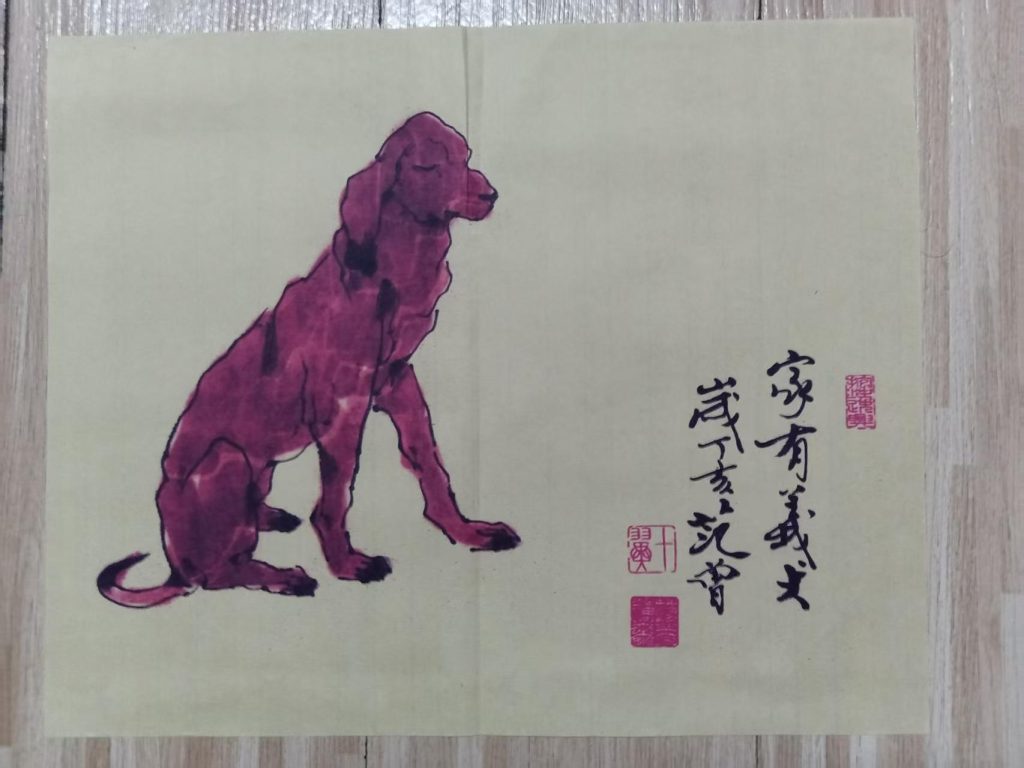 家有義犬
歲丁亥范曾